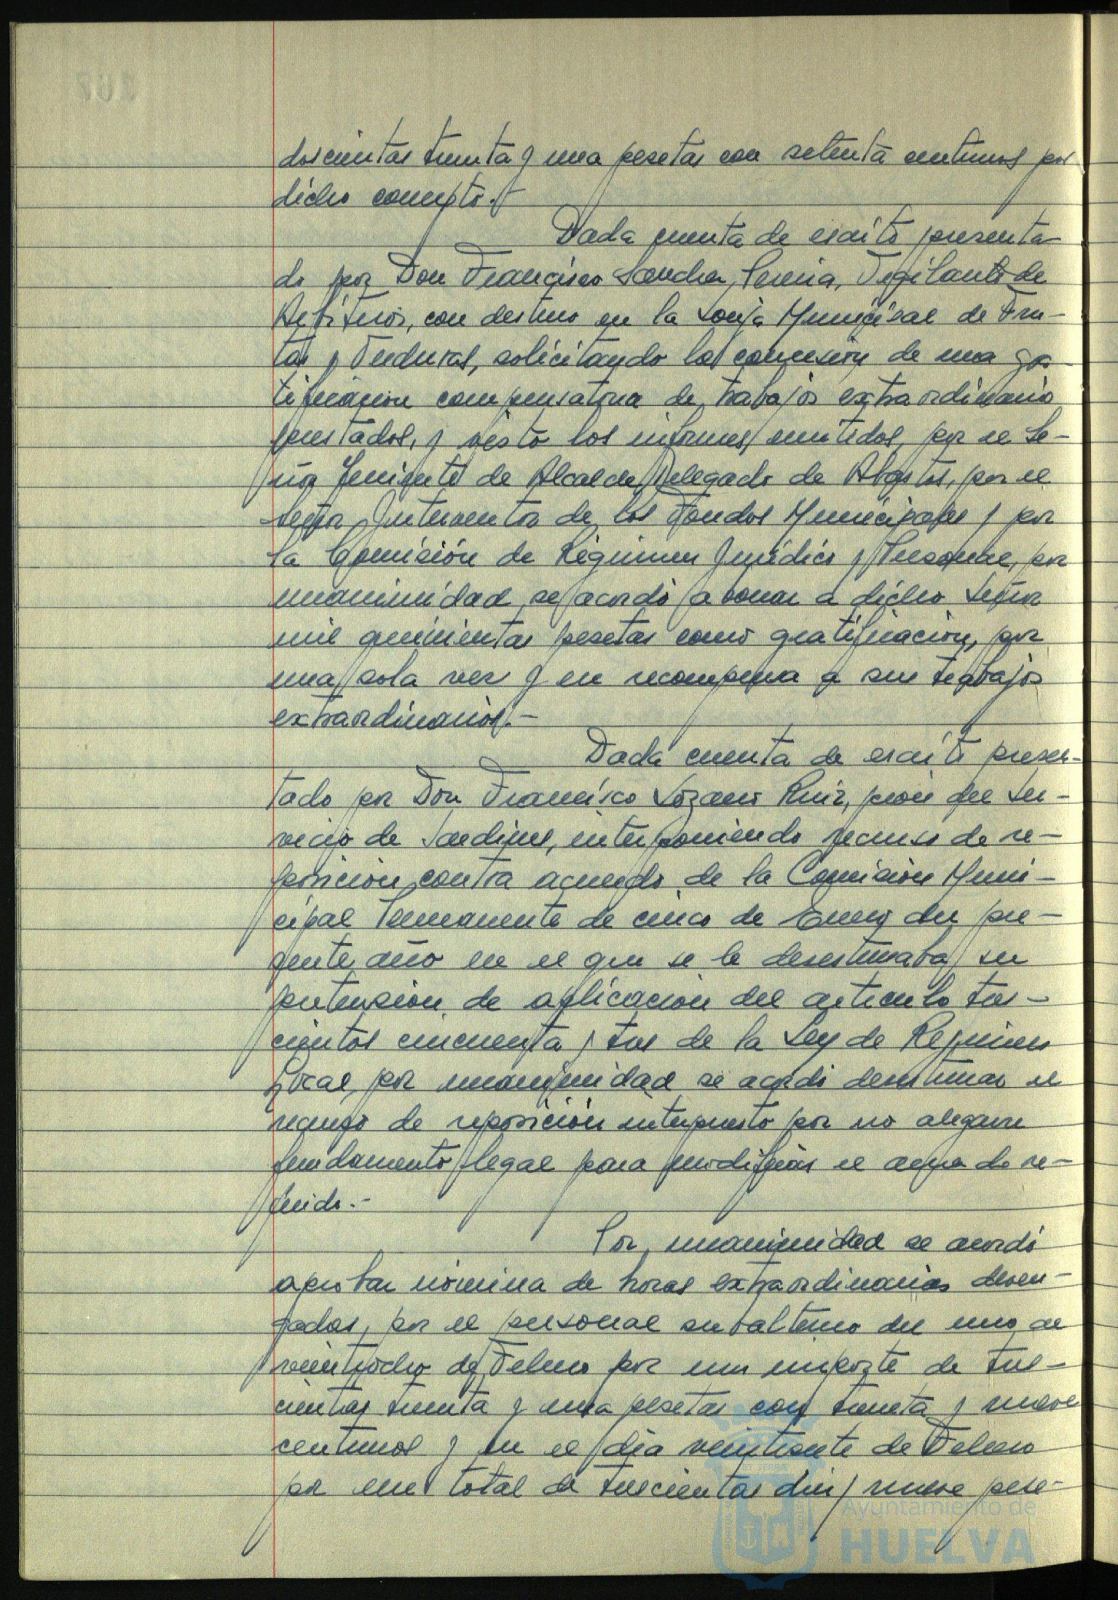 doscientas treinta y una pesetas con setenta centimos por
dicho concepto.-
Dada cuenta de escrito presenta-
do por Don Francisco Sanchez, Vigilante de
Arbitrios, con destino en la Lonja Municipal de Fru-
tas y Verduras, solicitando la concesión de una gra-
tificación compensatoria de trabajos extraordinario
prestados, y visto los informes emitidos, por el Se-
ñor Teniente de Alcalde Delegado de Abastos, por el
señor Interventor de los Fondos Municipales y por
la Comisión de Régimen Jurídico y Personal, por
unanimidad, se acordó abonar a dicho Señor
mil quinientas pesetas como gratificación, por
una sola vez y en recompensa a sus trabajos
extraordinarios.-
Dada cuenta de escrito presen-
tado por Don Francisco Lozano Ruiz, peón del Ser-
vicio de Jardines, interponiendo recurso de re-
posición contra acuerdo de la Comisión Muni-
cipal Permanente de cinco de Enero del pre-
sente año en el que se le desestimaba su
pretensión de aplicación del articulo tres-
cientos cincuenta y tres de la Ley de Regimen
Local, por unanimidad se acordó desestimar el
recurso de reposición interpuesto por no alegarse
fundamento legal para modificar el acuerdo re-
ferido.-
Por unanimidad se acordó
aprobar nómina de horas extraordinarias deven-
gadas, por el personal subalterno del uno al
veintiocho de Febrero por un importe de tres-
cientas treinta y una pesetas con treinta y nueve
centimos y en el día veintisiete de Febrero
por un total de trescientas diez y nueve pese-
Ayuntamiento de
HUELVA